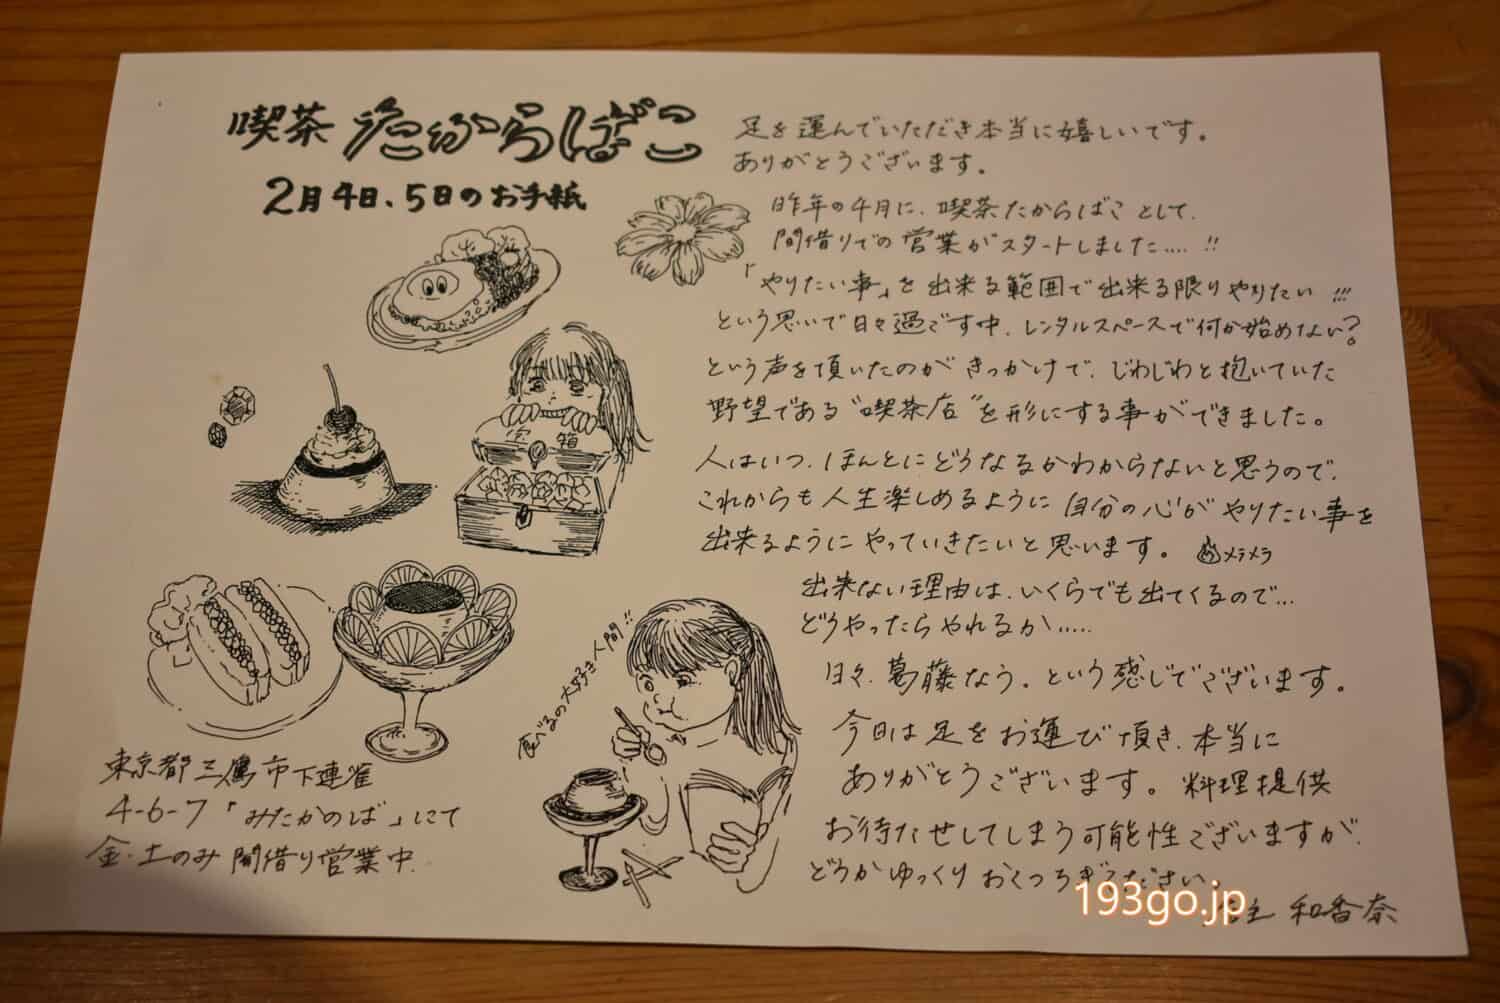 喫茶 たからばこ
2月4日、5日のお手紙
足を運んでいただき本当に嬉しいです。
ありがとうございます。
昨年の4月に、喫茶たからばことして、
間借りでの営業がスタートしました....!!
「やりたい事」を出来る範囲で出来る限りやりたい!!!
という思いで日々過ごす中、レンタルスペースで何か始めない?
という声を頂いたのがきっかけで、じわじわと抱いていた
野望である"喫茶店"を形にする事ができました。
人はいつ、ほんとにどうなるかわからないと思うので、
これからも人生楽しめるように自分の心がやりたい事を
出来るようにやっていきたいと思います。 メラメラ
出来ない理由は、いくらでも出てくるので...
どうやったらやれるか.....
日々、葛藤なう。という感じでございます。
今日は足をお運び頂き、本当に
ありがとうございます。料理提供
お待たせしてしまう可能性ございますが、
どうかゆっくりおくつろぎください。
店主 和香奈
宝箱
食べるの大好き人間!!
東京都三鷹市下連雀
4-6-7「みたかのば」にて
金・土のみ間借り営業中.
193go.jp